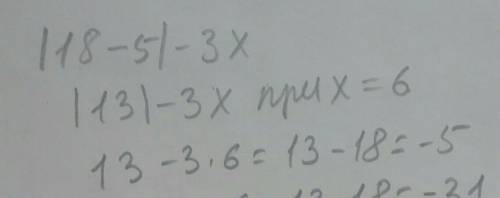 |18-5|-3x
|13|-3x при x=6
13-3·6=13-18=-5